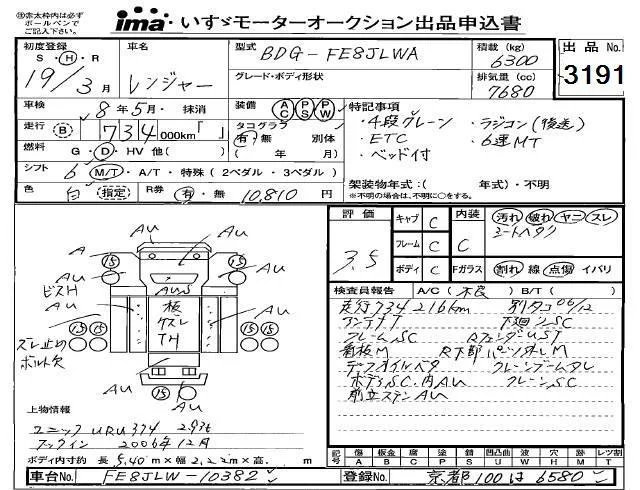 ※赤太枠内は必ず
ボールペンで
ご記入下さい。
ima いすゞモーターオークション出品申込書
初度登録
S・H・R
19/3月
車名
レンジャー
型式
BDG-FE8JLWA
グレード・ボディ形状
積載(kg)
6300
排気量(cc)
7680
出品No.
3191
車検
8年5月・抹消
走行 B 734000km「 」
燃料
G・D・HV 他( )
シフト
6 M/T・A/T・特殊(2ペダル・3ペダル)
色
白 指定
R券
有・無 10,810円
装備 AC PS PW
タコグラフ
有・無 別体
( 年 月)
特記事項
・4段クレーン ・ラジコン(後送)
・ETC ・6速MT
・ベッド付
架装物年式:( 年式)・不明
※不明の場合は、不明に○をする。
評価
3.5
キャブ C
フレーム C
ボディ C
内装
C
汚れ 破れ ヤニ スレ
シートヘタリ
Fガラス 割れ 線 点傷 イバリ
検査員報告 A/C(不良) B/T( )
走行734216km 別タコ06/12
アンテナT 下廻りSC
フレームSC RフェンダーUST
看板M R下部パイプ外レM
デフオイルベタ クレーンブームタレ
ボデーSC.内AU クレーンSC
前立ステンAU
A
AU
AU
AU
AU
AU
AU
AU
AU
AU
AUS
15
15
15
15
15
ビスH
板
ケズレ
TH
ズレ止め
ボルト欠
上物情報
ユニック URU374 2.93t
フックイン 2006年12月
ボディ内寸約 長 5.40m×幅 2.22m×高. m
記号
傷 板金 腐 塗 錆 凹凸曲 波 穴 時 レツ割
A B C P S U W H M T
車台No. FE8JLW-10382
登録No. 京都100は6580